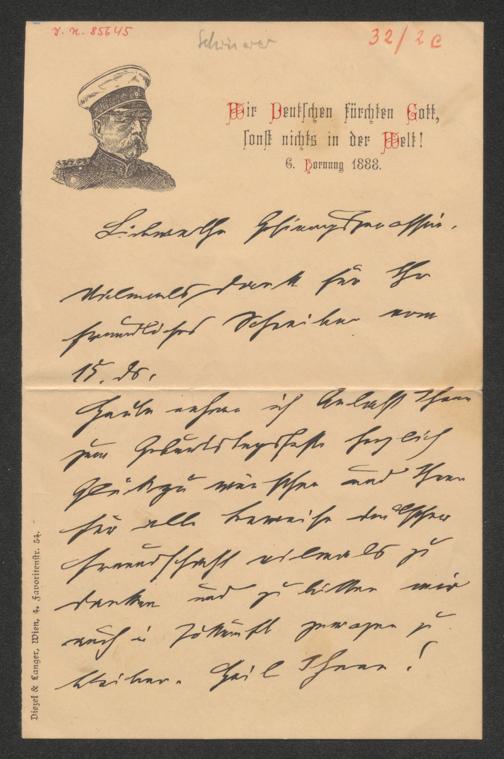 I. N. 85645
32/2 c
Wir Deutschen fürchten Gott,
sonst nichts in der Welt!
6. Hornung 1888.
Liebwerthe Gesinnungsgenossin.
Vielmals Dank für Ihr
freundliches Schreiben vom
15. ds.
Heute nehme ich Anlaß Ihnen
zum Geburtstagsfeste herzlich
Glück zu wünschen und Ihnen
für alle Beweise deutscher
Freundschaft vielmals zu
danken und zu bitten mir
auch in Zukunft gewogen zu
bleiben. Heil Ihnen!
Diezel & Langer, Wien, 4. Favoritenstr. 54.